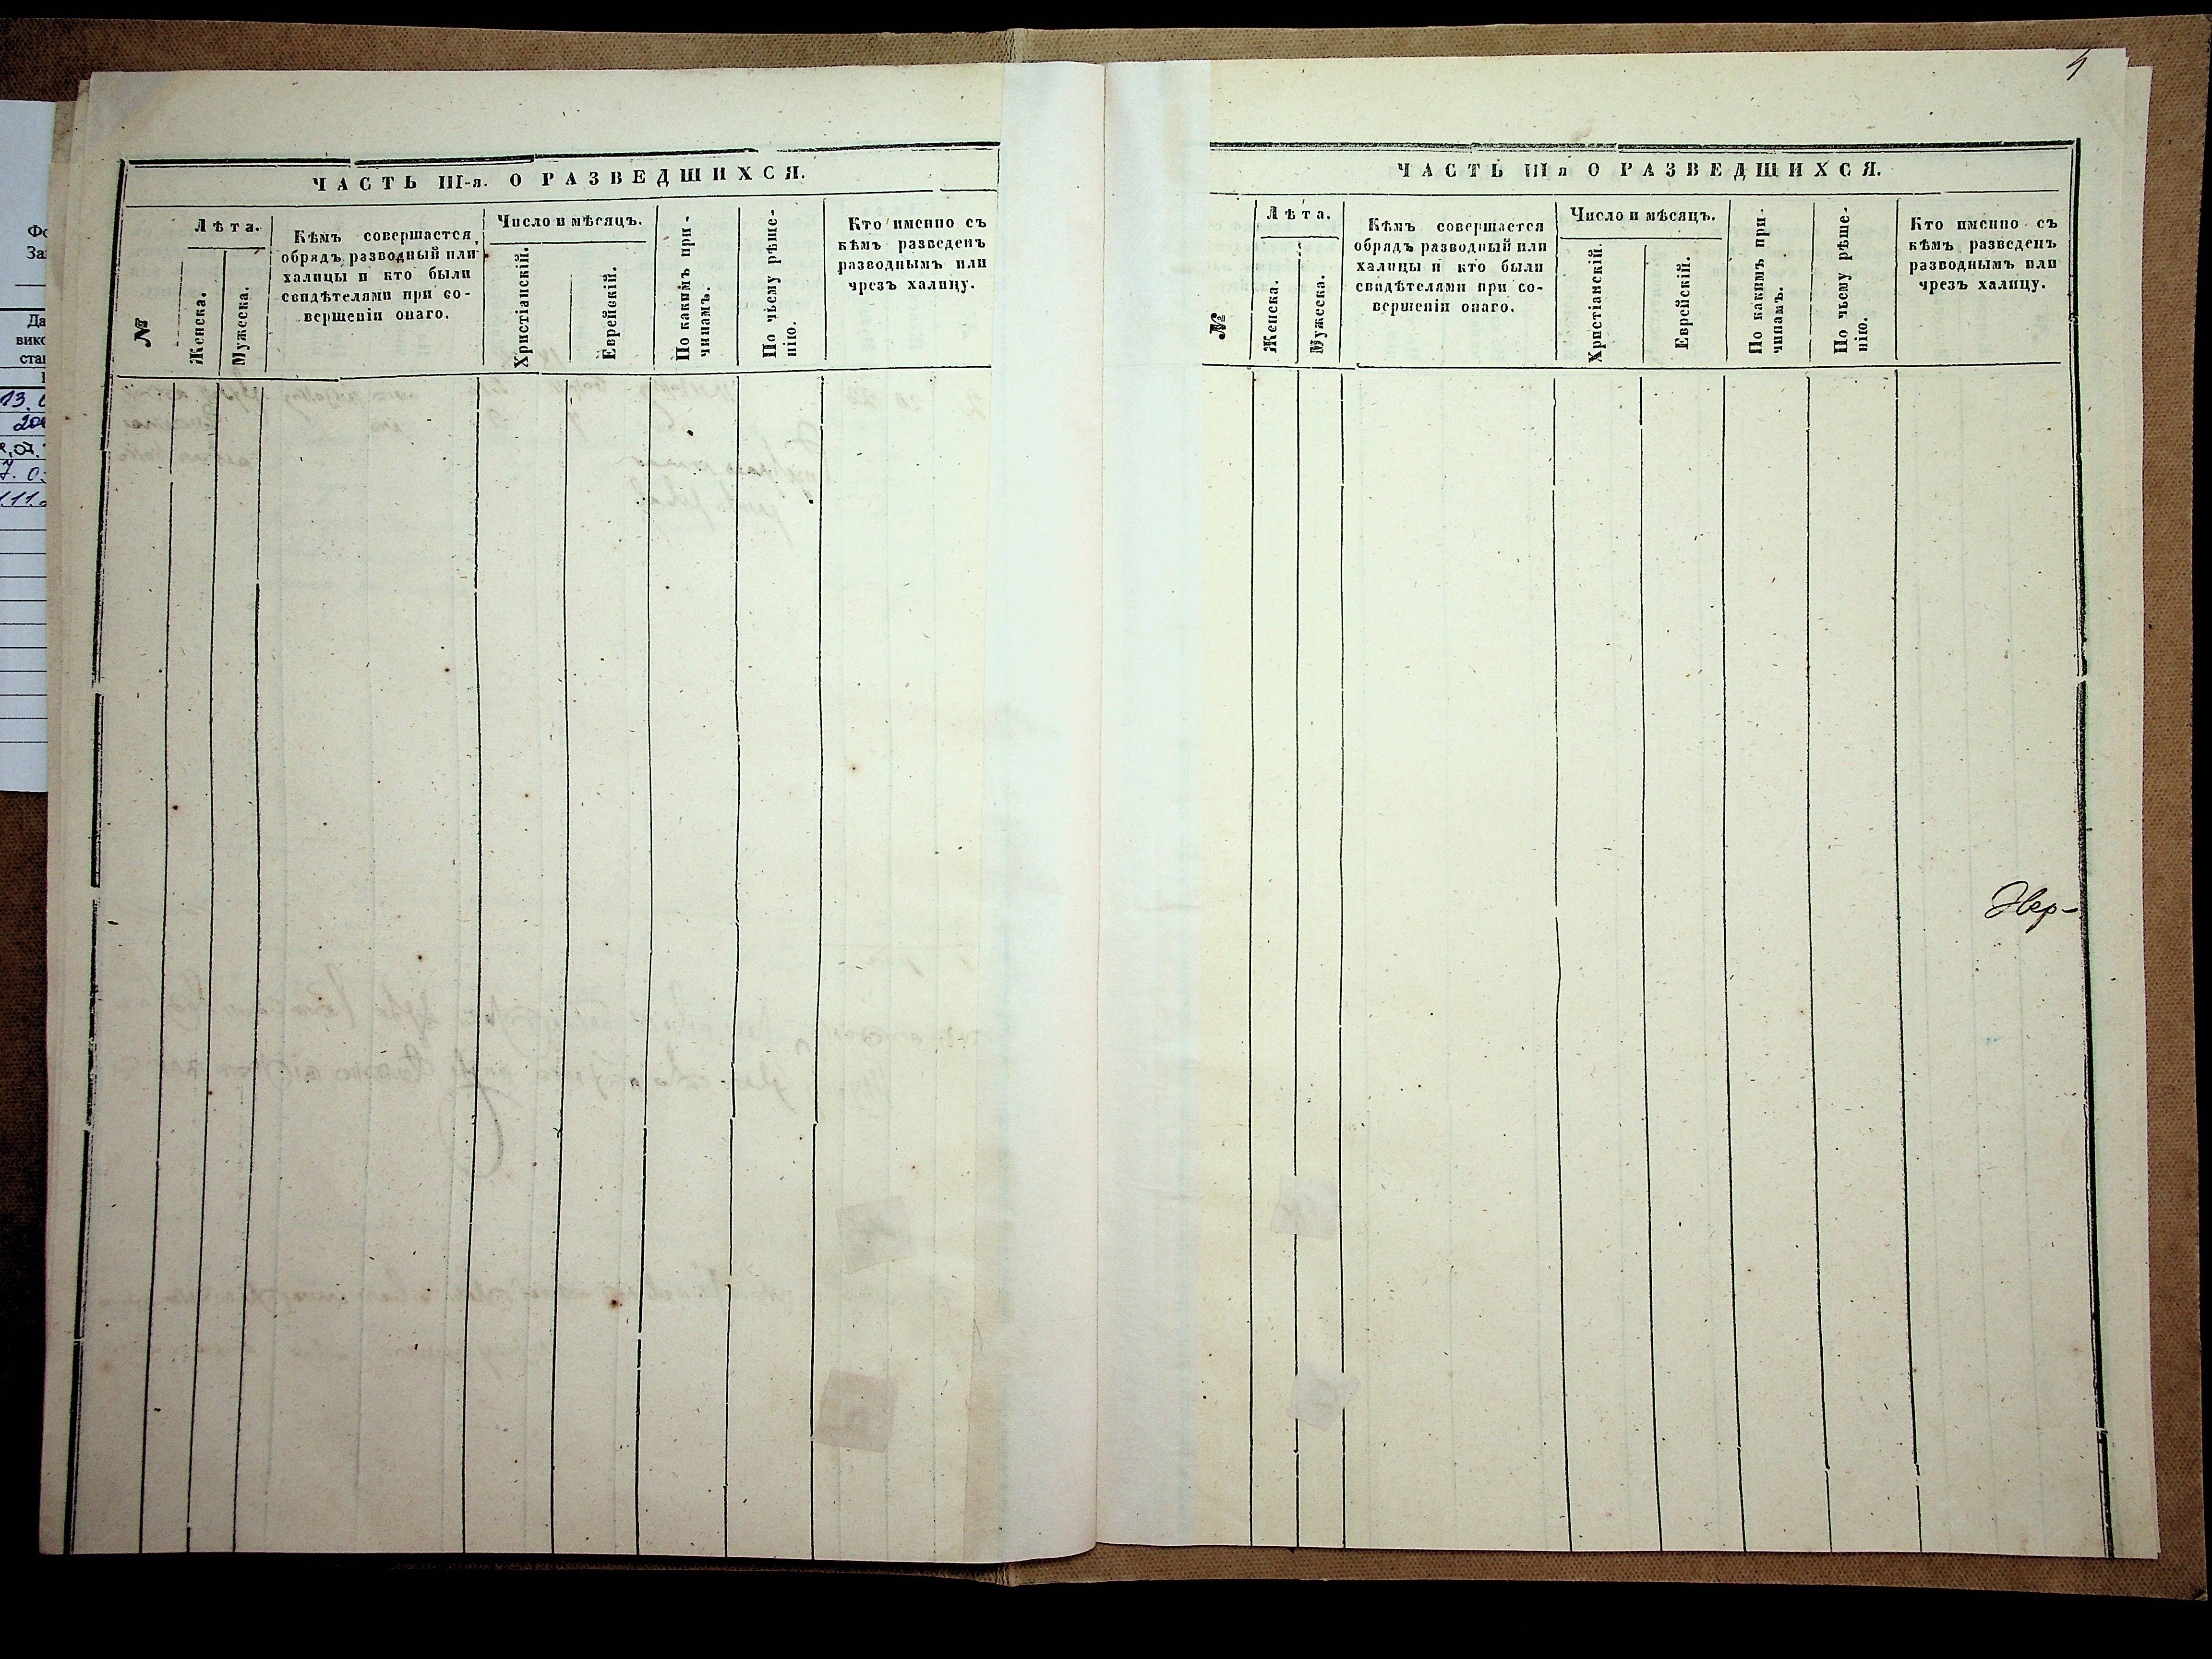 4
ЧАСТЬ III-я. О РАЗВЕДШИХСЯ.
№
Лѣта.
Женска.
Мужеска.
Кѣмъ совершается
обрядъ разводный или
халицы и кто были
свидѣтелями при со-
вершеніи онаго.
Число и мѣсяцъ.
Христіанскій.
Еврейскій.
По какимъ при-
чинамъ.
По чьему рѣше-
нію.
Кто именно съ
кѣмъ разведенъ
разводнымъ или
чрезъ халицу.
ЧАСТЬ III я О РАЗВЕДШИХСЯ.
№
Лѣта.
Женска.
Мужеска.
Кѣмъ совершается
обрядъ разводный или
халицы и кто были
свидѣтелями при со-
вершеніи онаго.
Число и мѣсяцъ.
Христіанскій.
Еврейскій.
По какимъ при-
чинамъ.
По чьему рѣше-
нію.
Кто именно съ
кѣмъ разведенъ
разводнымъ или
чрезъ халицу.